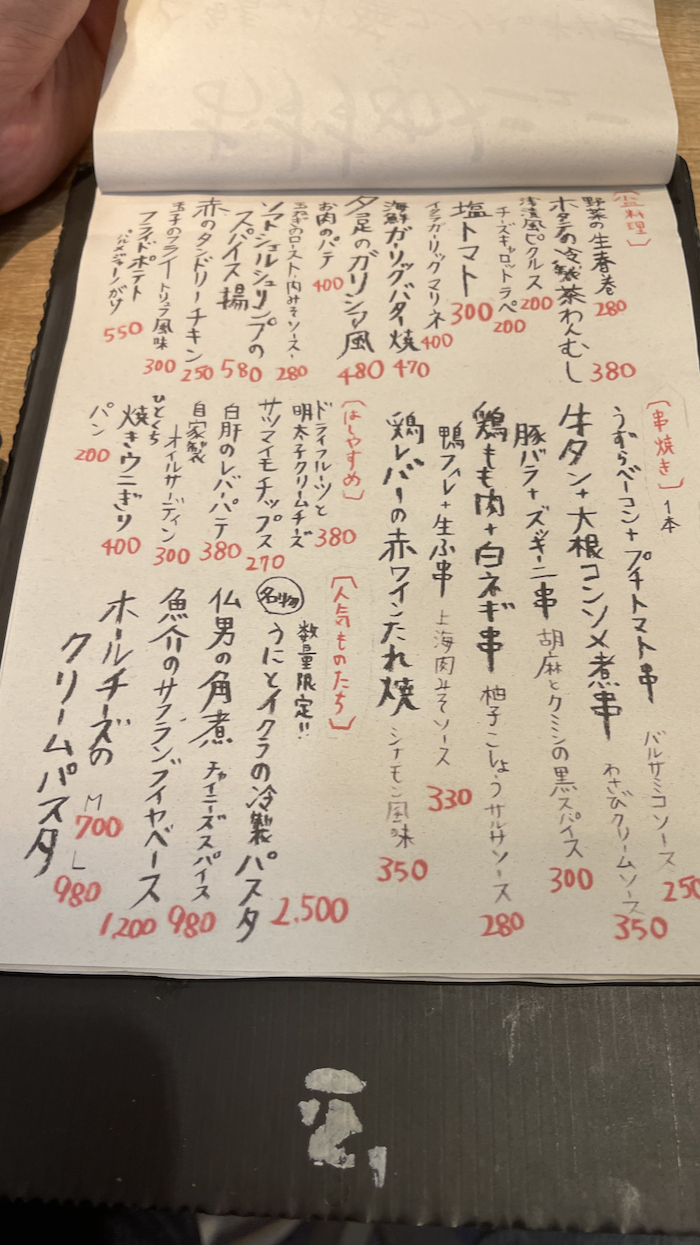 〔皿料理〕
野菜の生春巻 280
ホタテの冷製茶わんむし 380
浅漬風ピクルス 200
チーズキャロットラペ 200
塩トマト 300
イクラガーリックマリネ 400
海鮮ガーリックバター焼 470
夕足のガリシア風 480
お肉のパテ 400
玉ねぎのロースト・肉みそソース・ 280
ソフトシェルシュリンプの
スパイス揚 580
赤のタンドリーチキン 250
玉子のフライ トリュフ風味 300
フライドポテト
パルメジャーノがけ 550
〔串焼き〕 1本
うずらベーコン+プチトマト串 バルサミコソース 250
牛タン+大根コンソメ煮串 わさびクリームソース 350
豚バラ+ズッキーニ串 胡麻とクミンの黒スパイス 300
鶏もも肉+白ネギ串 柚子こしょうサルサソース 280
鴨フィレ+生ふ串 上海肉みそソース 330
鶏レバーの赤ワインたれ焼 シナモン風味 350
〔はしやすめ〕
ドライフルーツと
明太子クリームチーズ 380
サツマイモチップス 270
白肝のレバーパテ 380
自家製
オイルサーディン 300
ひとくち
焼きウニぎり 400
パン 200
〔人気ものたち〕
数量限定!!
名物 うにとイクラの冷製パスタ 2,500
仏男の角煮 チャイニーズスパイス 980
魚介のサフランブイヤベース 1,200
ホールチーズの
クリームパスタ M 700 L 980